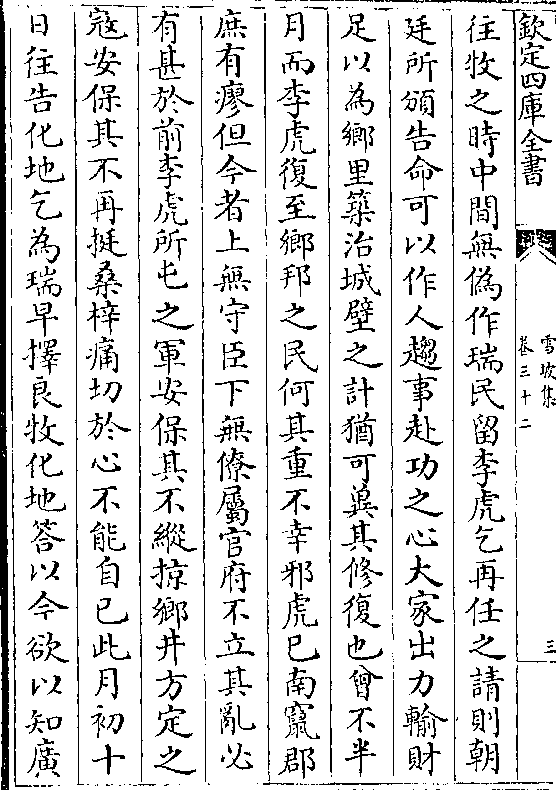 欽定四庫全書
雪坡集
卷三十二
三
往牧之時中間無偽作瑞民留李虎乞再任之請則朝
廷所頒告命可以作人趨事赴功之心大家出力輸財
足以為鄉里築治城壁之計猶可兾其修復也曾不半
月而李虎復至鄉邦之民何其重不幸邪虎已南竄郡
庶有瘳但今者上無守臣下無僚屬官府不立其亂必
有甚於前李虎所屯之軍安保其不縱掠鄉井方定之
寇安保其不再挺桑梓痛切於心不能自已此月初十
日往告化地乞為瑞早擇良牧化地答以今欲以知廣